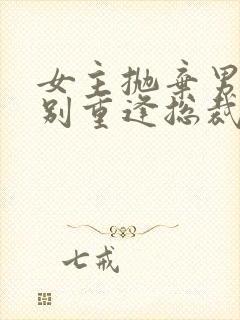 女主抛弃男
别重逢总裁
七戒